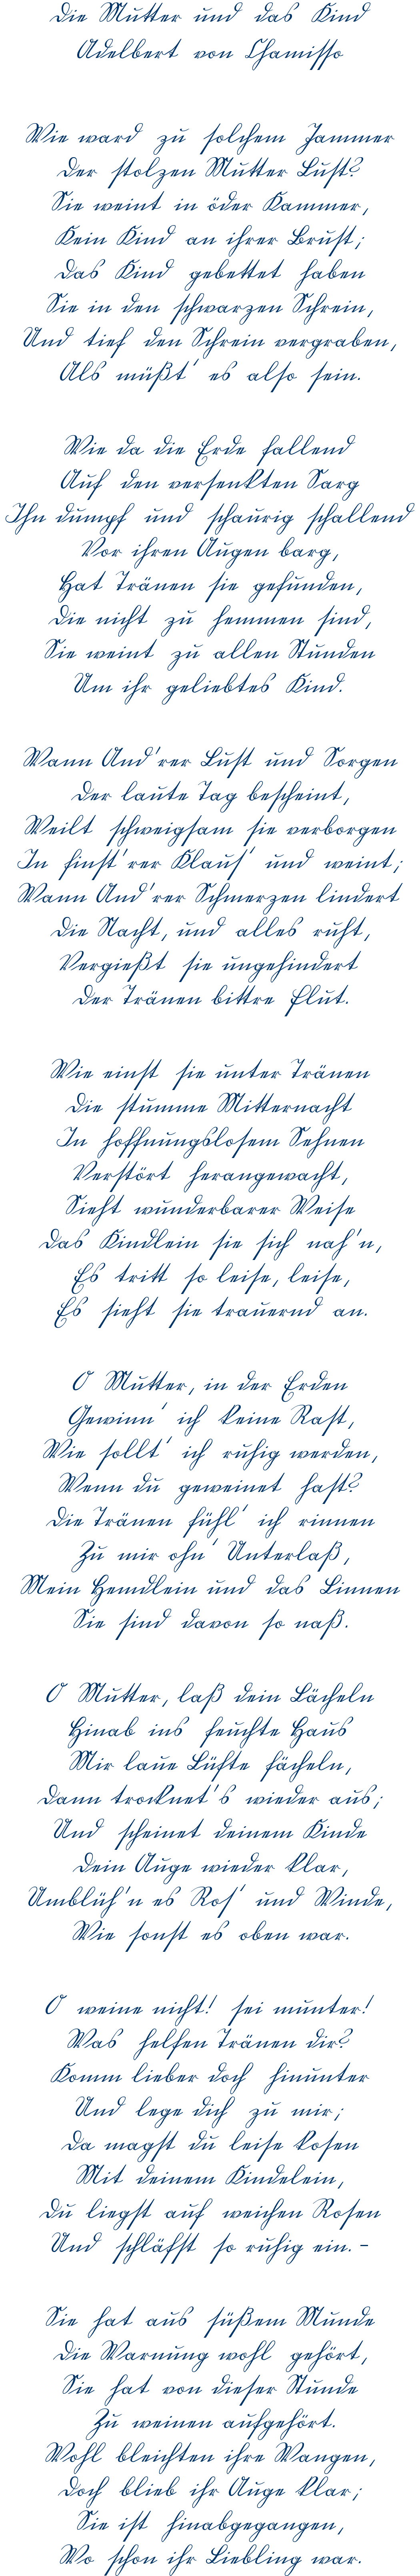 Die Mutter und das Kind
Adelbert von Chamisso
Wie ward zu solchem Jammer
Der stolzen Mutter Lust?
Sie weint in öder Kammer,
Kein Kind an ihrer Brust;
Das Kind gebettet haben
Sie in den schwarzen Schrein,
Und tief den Schrein vergraben,
Als müßt' es also sein.
Wie da die Erde fallend
Auf den versenkten Sarg
Ihn dumpf und schaurig schallend
Vor ihren Augen barg,
Hat Tränen sie gefunden,
Die nicht zu hemmen sind,
Sie weint zu allen Stunden
Um ihr geliebtes Kind.
Wann And'rer Lust und Sorgen
Der laute Tag bescheint,
Weilt schweigsam sie verborgen
In finst'rer Klaus' und weint;
Wann And'rer Schmerzen lindert
Die Nacht, und alles ruht,
Vergießt sie ungehindert
Der Tränen bittre Flut.
Wie einst sie unter Tränen
Die stumme Mitternacht
In hoffnungslosem Sehnen
Verstört herangewacht,
Sieht wunderbarer Weise
Das Kindlein sie sich nah'n,
Es tritt so leise, leise,
Es sieht sie trauernd an.
O Mutter, in der Erden
Gewinn' ich keine Rast,
Wie sollt' ich ruhig werden,
Wenn du geweinet hast?
Die Tränen fühl' ich rinnen
Zu mir ohn' Unterlaß,
Mein Hemdlein und das Linnen
Sie sind davon so naß.
O Mutter, laß dein Lächeln
Hinab ins feuchte Haus
Mir laue Lüfte fächeln,
Dann trocknet's wieder aus;
Und scheinet deinem Kinde
Dein Auge wieder klar,
Umblüh'n es Ros' und Winde,
Wie sonst es oben war.
O weine nicht! sei munter!
Was helfen Tränen dir?
Komm lieber doch hinunter
Und lege dich zu mir;
Da magst du leise kosen
Mit deinem Kindelein,
Du liegst auf weichen Rosen
Und schläfst so ruhig ein. –
Sie hat aus süßem Munde
Die Warnung wohl gehört,
Sie hat von dieser Stunde
Zu weinen aufgehört.
Wohl bleichten ihre Wangen,
Doch blieb ihr Auge klar;
Sie ist hinabgegangen,
Wo schon ihr Liebling war.